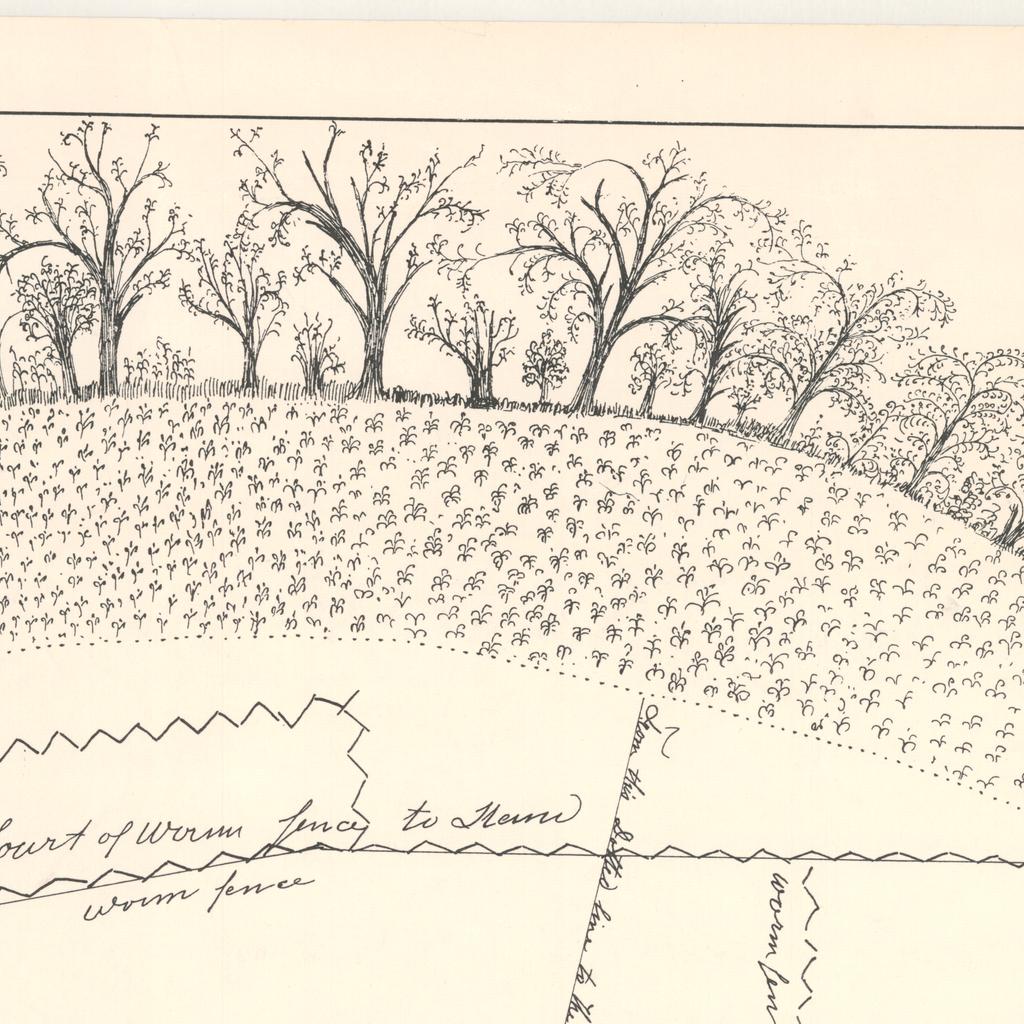 Court of Worm fence to
worm fence
From this dotted line to the
worm fen